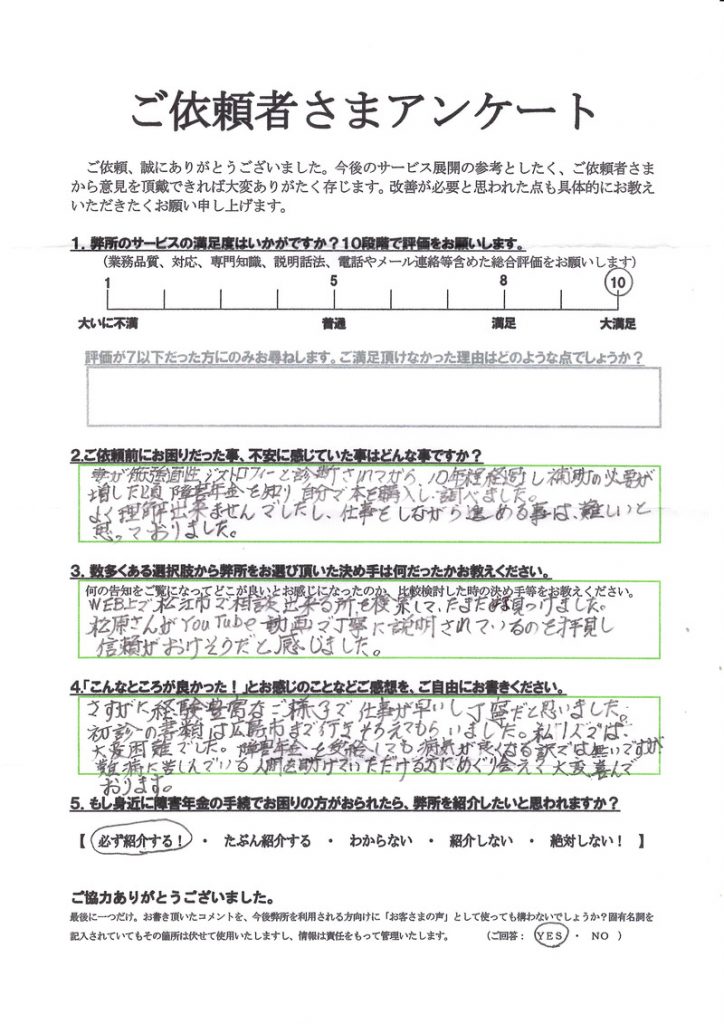 ご依頼者さまアンケート
ご依頼、誠にありがとうございました。今後のサービス展開の参考としたく、ご依頼者さま
から意見を頂戴できれば大変ありがたく存じます。改善が必要と思われた点も具体的にお教え
いただきたくお願い申し上げます。
1. 弊所のサービスの満足度はいかがですか?10段階で評価をお願いします。
(業務品質、対応、専門知識、説明話法、電話やメール連絡等含めた総合評価をお願いします)
1 5 8 10
大いに不満 普通 満足 大満足
評価が7以下だった方にのみお尋ねします。ご満足頂けなかった理由はどのような点でしょうか?
2.ご依頼前にお困りだった事、不安に感じていた事はどんな事ですか?
妻が筋強直性ジストロフィーと診断されてから、10年程経過し補助の必要が
増した頃障害年金を知り自分で本を購入し調べました。
よく理解出来ませんでしたし、仕事をしながら進める事は、難しいと
思っておりました。
3. 数多くある選択肢から弊所をお選び頂いた決め手は何だったかお教えください。
何の告知をご覧になってどこが良いとお感じになったのか、比較検討した時の決め手等をお教えください。
WEB上で松江市で相談出来る所を検索して、たまたま見つけました。
松原さんがYouTube動画で丁寧に説明されているのを拝見し
信頼がおけそうだと感じました。
4.「こんなところが良かった!」とお感じのことなどご感想を、ご自由にお書きください。
さすがに経験豊富なご様子で仕事が早いし丁寧だと思いました。
初診の書類は広島市まで行きそろえてもらいました。私1人では、
大変困難でした。障害年金を受給しても病気が良くなる訳では無いですが
難病に苦しんでいる人間を助けていただける方にめぐり会えて大変喜んで
おります。
5. もし身近に障害年金の手続でお困りの方がおられたら、弊所を紹介したいと思われますか?
【 必ず紹介する! ・ たぶん紹介する ・ わからない ・ 紹介しない ・ 絶対しない! 】
ご協力ありがとうございました。
最後に一つだけ。お書き頂いたコメントを、今後弊所を利用される方向けに「お客さまの声」として使っても構わないでしょうか?固有名詞を
記入されていてもその箇所は伏せて使用いたしますし、情報は責任をもって管理いたします。 (ご回答: YES ・ NO )